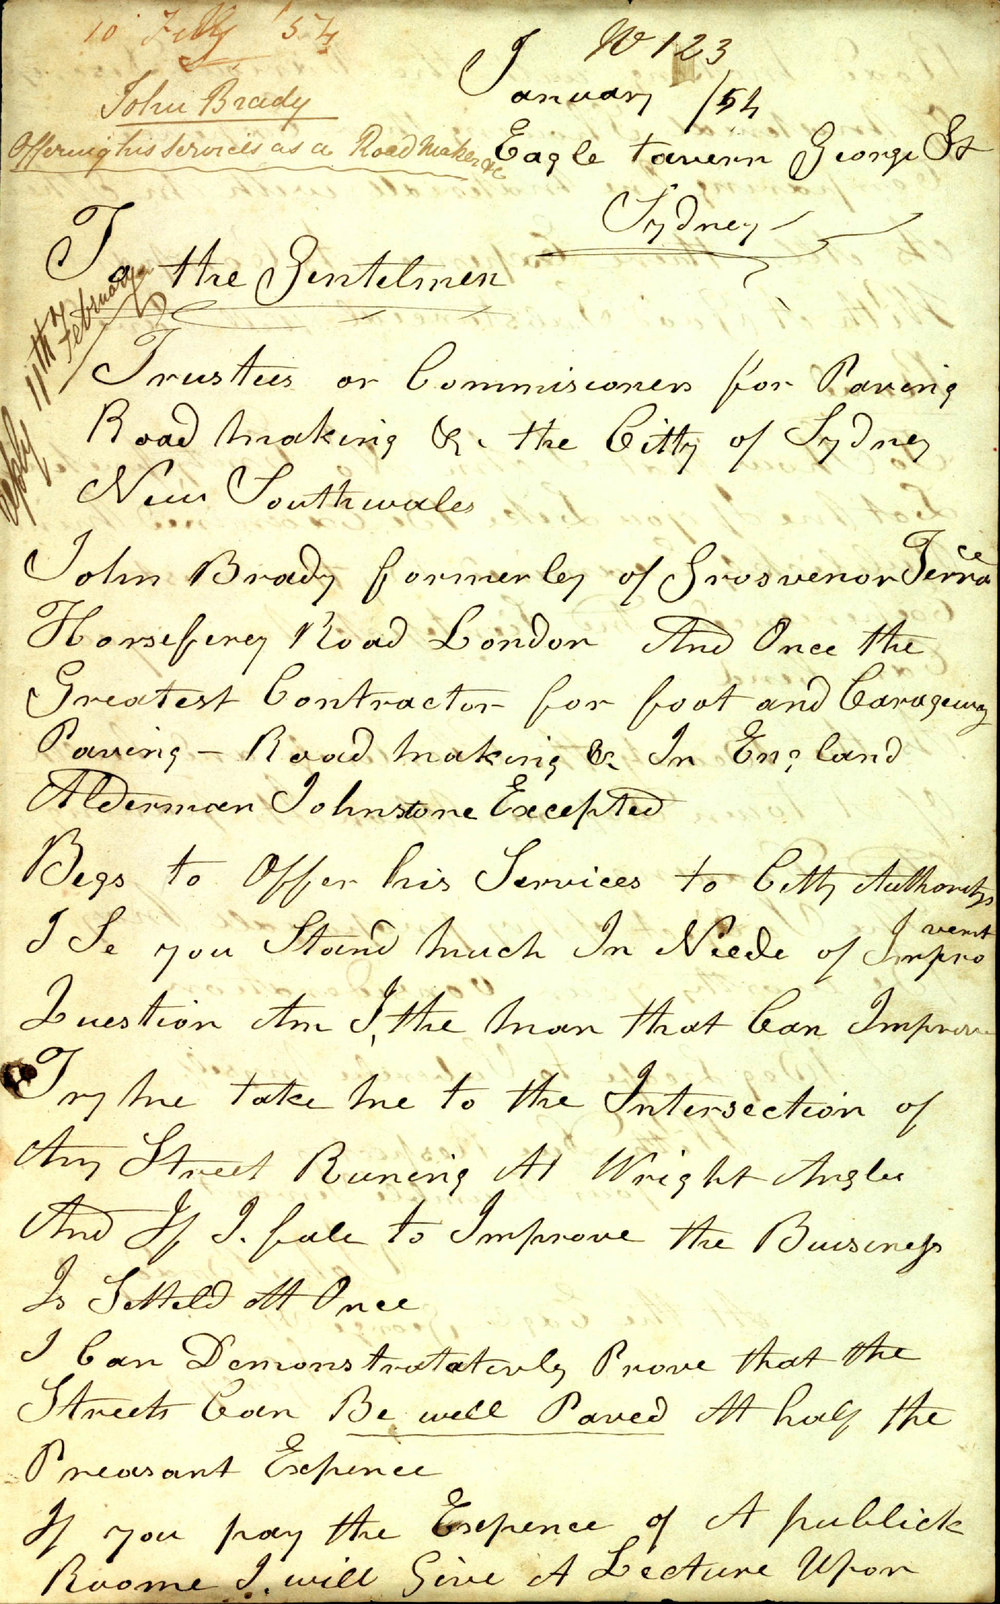 10 Feby '54
John Brady
Offering his services as a Road Maker &c
No 123
January /54
Eagle tavern George St
Sydney
To the Gentelmen
11th February
Trustees or Commisioners for Paving
Road making &c. the Citty of Sydney
New Southwales
John Brady formerley of Grosvenor Terrace
Horseferey Road London And Once the
Greatest Contractor for foot and Carageway
Paving - Road making &c In England
Alderman Johnstone Excepted
Begs to Offer his Services to Citty Authoritys
I Se you Stand much In Neede of Improvemt
Question Am I, the man that Can Improve
Try me take me to the Intersection of
Any Street Runing At Wright Angles
And If I. fale to Improve the Buisiness
Is Setteld Att Once
I Can Demonstratateverly Prove that the
Streets Can Be well Paved Att half the
Preasant Expence
If you pay the Expence of A publick
Roome I. will Give A Lecture Upon